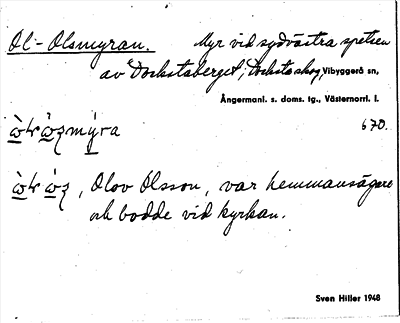 Ol-Olsmyran. Myr vid sydvästra spetsen
av Dockstaberget, Docksta skog, Vibyggerå sn,
Ångermanl. s. doms. tg., Västernorrl. l.
670.
, Olov Olsson, var hemmansägare
och bodde vid kyrkan.
Sven Hiller 1948